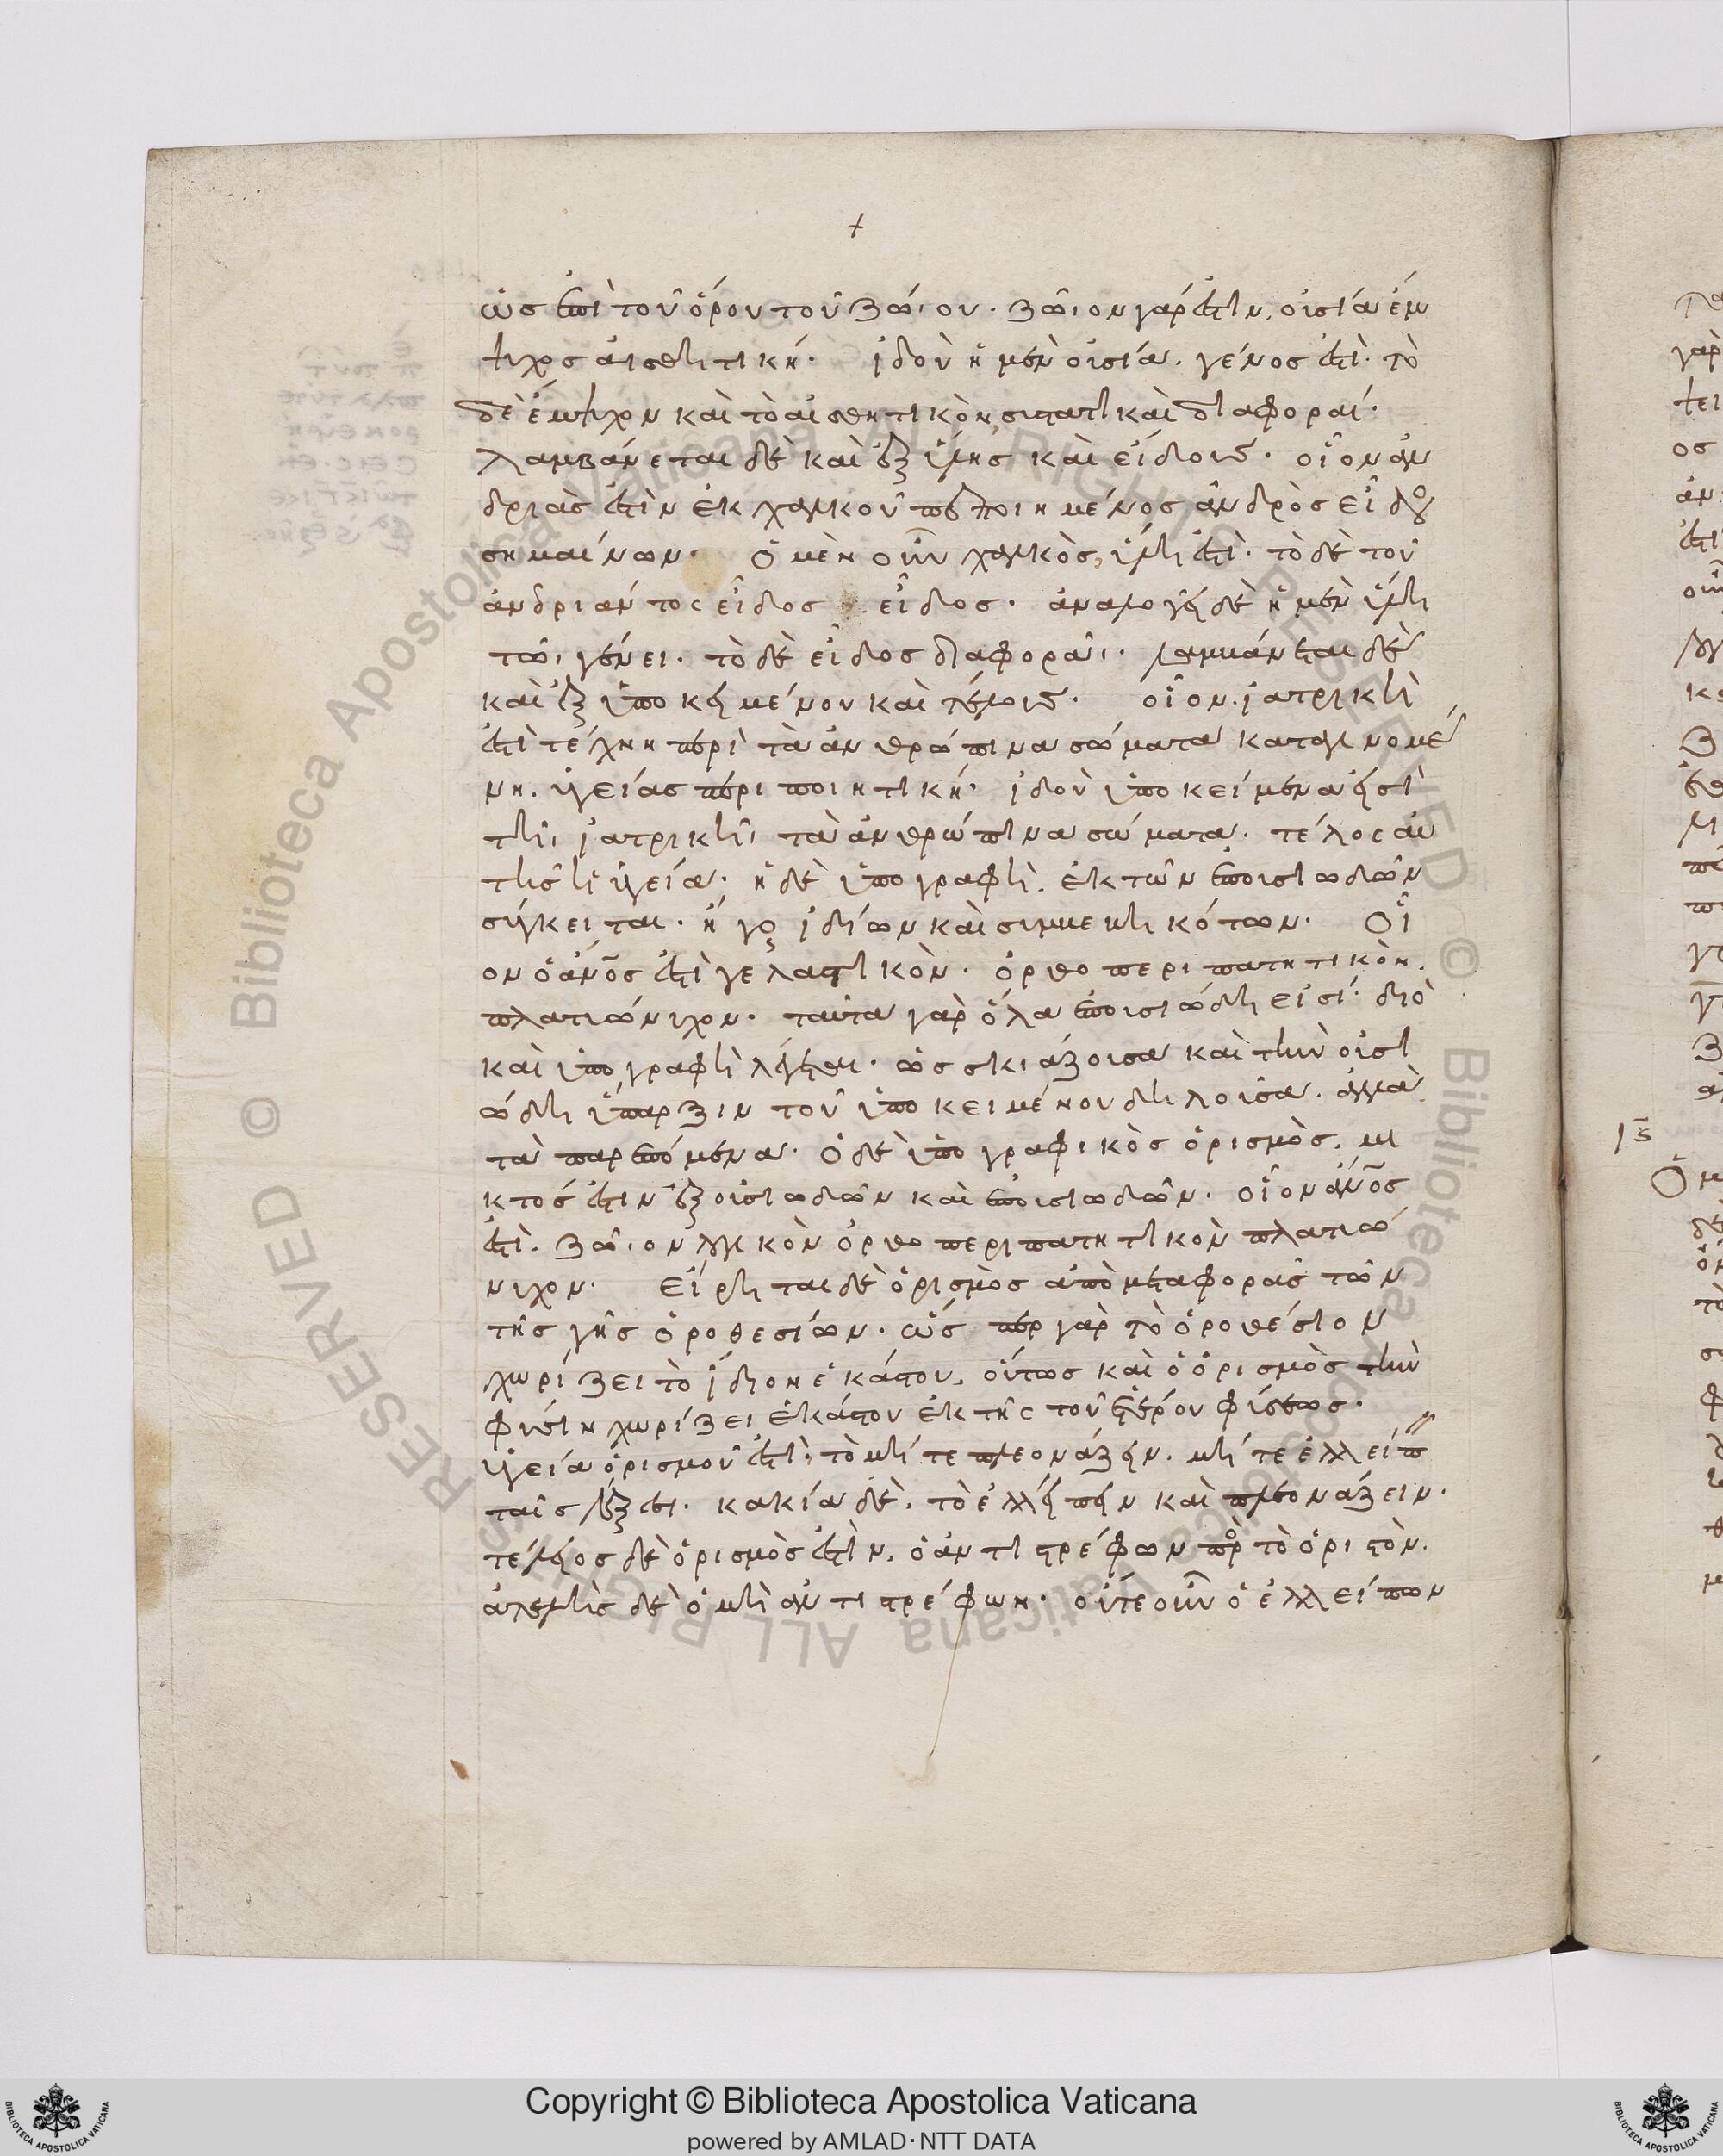 +
ὡς ἐπὶ τοῦ ὅρου τοῦ ζώιου. ζῶιον γάρ ἐστιν, οὐσία ἔμ
ψυχος αἰσθητική. ἰδοὺ ἡ μὲν οὐσία. γένος ἐστί. τὸ
δὲ ἔμψυχον καὶ τὸ αἰσθητικὸν, συστατικαὶ διαφοραί.
λαμβάνεται δὲ καὶ ἐξ ὕλης καὶ εἴδους. οἷον ἀν
δριάς ἐστιν ἐκ χαλκοῦ πεποιημένος ἀνδρὸς εἶδος
σημαίνων. ὁ μὲν οὖν χαλκὸς, ὕλη ἐστί. τὸ δὲ τοῦ
ἀνδριάντος εἶδος εἶδος. ἀναλογεῖ δὲ ἡ μὲν ὕλη
τῶι γένει. τὸ δὲ εἶδος διαφορᾶι. λαμβάνεται δὲ
καὶ ἐξ ὑποκειμένου καὶ τέλους. οἷον. ἰατρικὴ
ἐστὶ τέχνη περὶ τὰ ἀνθρώπινα σώματα καταγινομέ
νη. ὑγείας περιποιητική. ἰδοὺ ὑποκείμενα εἰσὶ
τῆι ἰατρικῆι τὰ ἀνθρώπινα σώματα. τέλος αὐ
τῆς ἡ ὑγεία. ἡ δὲ ὑπογραφὴ. ἐκ τῶν ἐπουσιωδῶν
σύγκειται. ἤγουν ἰδίων καὶ συμβεβηκότων. οἷ
ον ὁ ἄνος ἐστὶ γελαστικὸν. ὀρθοπεριπατητικὸν.
πλατυώνυχον. ταῦτα γὰρ ὅλα ἐπουσιώδη εἰσί. διὸ
καὶ ὑπογραφὴ λέγεται. ὡς σκιάζουσα καὶ τὴν οὐσι
ώδη ὕπαρξιν τοῦ ὑποκειμένου δηλοῦσα. ἀλλὰ
τὰ παρεπόμενα. ὁ δὲ ὑπογραφικὸς ὁρισμὸς, μι
κτός ἐστιν ἐξ οὐσιωδῶν καὶ ἐπουσιωδῶν. οἷον ἄνος
ἐστὶ. ζῶιον λογικὸν ὀρθοπεριπατητικὸν πλατυώ
νυχον. εἴρηται δὲ ὁρισμὸς ἀπὸ μεταφορᾶς τῶν
τῆς γῆς ὁροθεσίων. ὥσπερ γὰρ τὸ ὁροθέσιον
χωρίζει τὸ ἴδιον ἑκάστου, οὕτως καὶ ὁ ὁρισμὸς τὴν
φύσιν χωρίζει ἑκάστου ἐκ τῆς τοῦ ἑτέρου φύσεως.
ὑγεία ὁρισμοῦ ἐστὶ. τὸ μήτε πλεονάζειν. μήτε ἐλλείπειν
ταῖς λέξεσι. κακία δὲ. τὸ ἐλλείπειν καὶ πλεονάζειν.
τέλειος δὲ ὁρισμὸς ἐστὶν, ὁ ἀντιστρέφων πρὸς τὸ ὁριστὸν.
ἀτελὴς δὲ ὁ μὴ ἀντιστρέφων. οὔτε οὖν ὁ ἐλλείπων